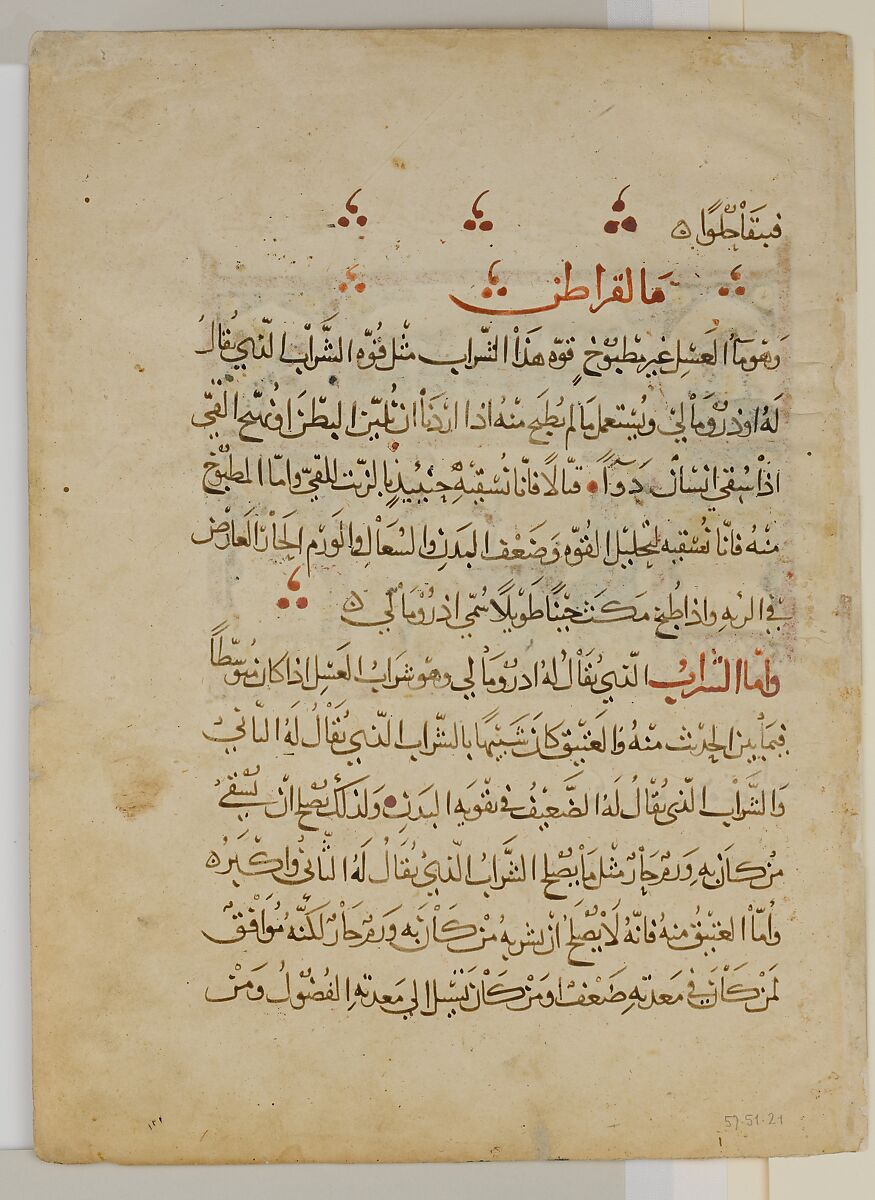 فيتقاجلوا ه
مالقراطن
وهو ماء العسل غير مطبوخ قوه هذا الشراب مثل قوه الشراب الذي يقال
له اوذرومالي ويستعمل ما لم يطبخ منه اذا اردنا ان نلين البطن او نهيج القي
اذا سقي انسان دوآ قتالا فانا نسقيه حينيذ بالزيت للقي واما المطبوخ
منه فانا نسقيه لتحليل القوه وضعف البدن والسعال والورم الحار العارض
في الريه واذا طبخ مكث حينا طويلا سمي اذرومالي ه
واما الشراب الذي يقال له ادرومالي وهو شراب العسل اذا كان متوسطا
فيما بين الحدث منه والعتيق كان شبيها بالشراب الذي يقال له الثاني
والشراب الذي يقال له الضعيف في تقويه البدن ولذلك يصلح ان يسقي
من كان به ورم حار مثل ما يصلح الشراب الذي يقال له الثاني
واما العتيق منه فانه لا يصلح ان يشربه من كان به ورم حار لكنه موافق
لمن كان في معدته ضعف او من كان الي معدته الفضول ومن
١٢٢
57.51.21